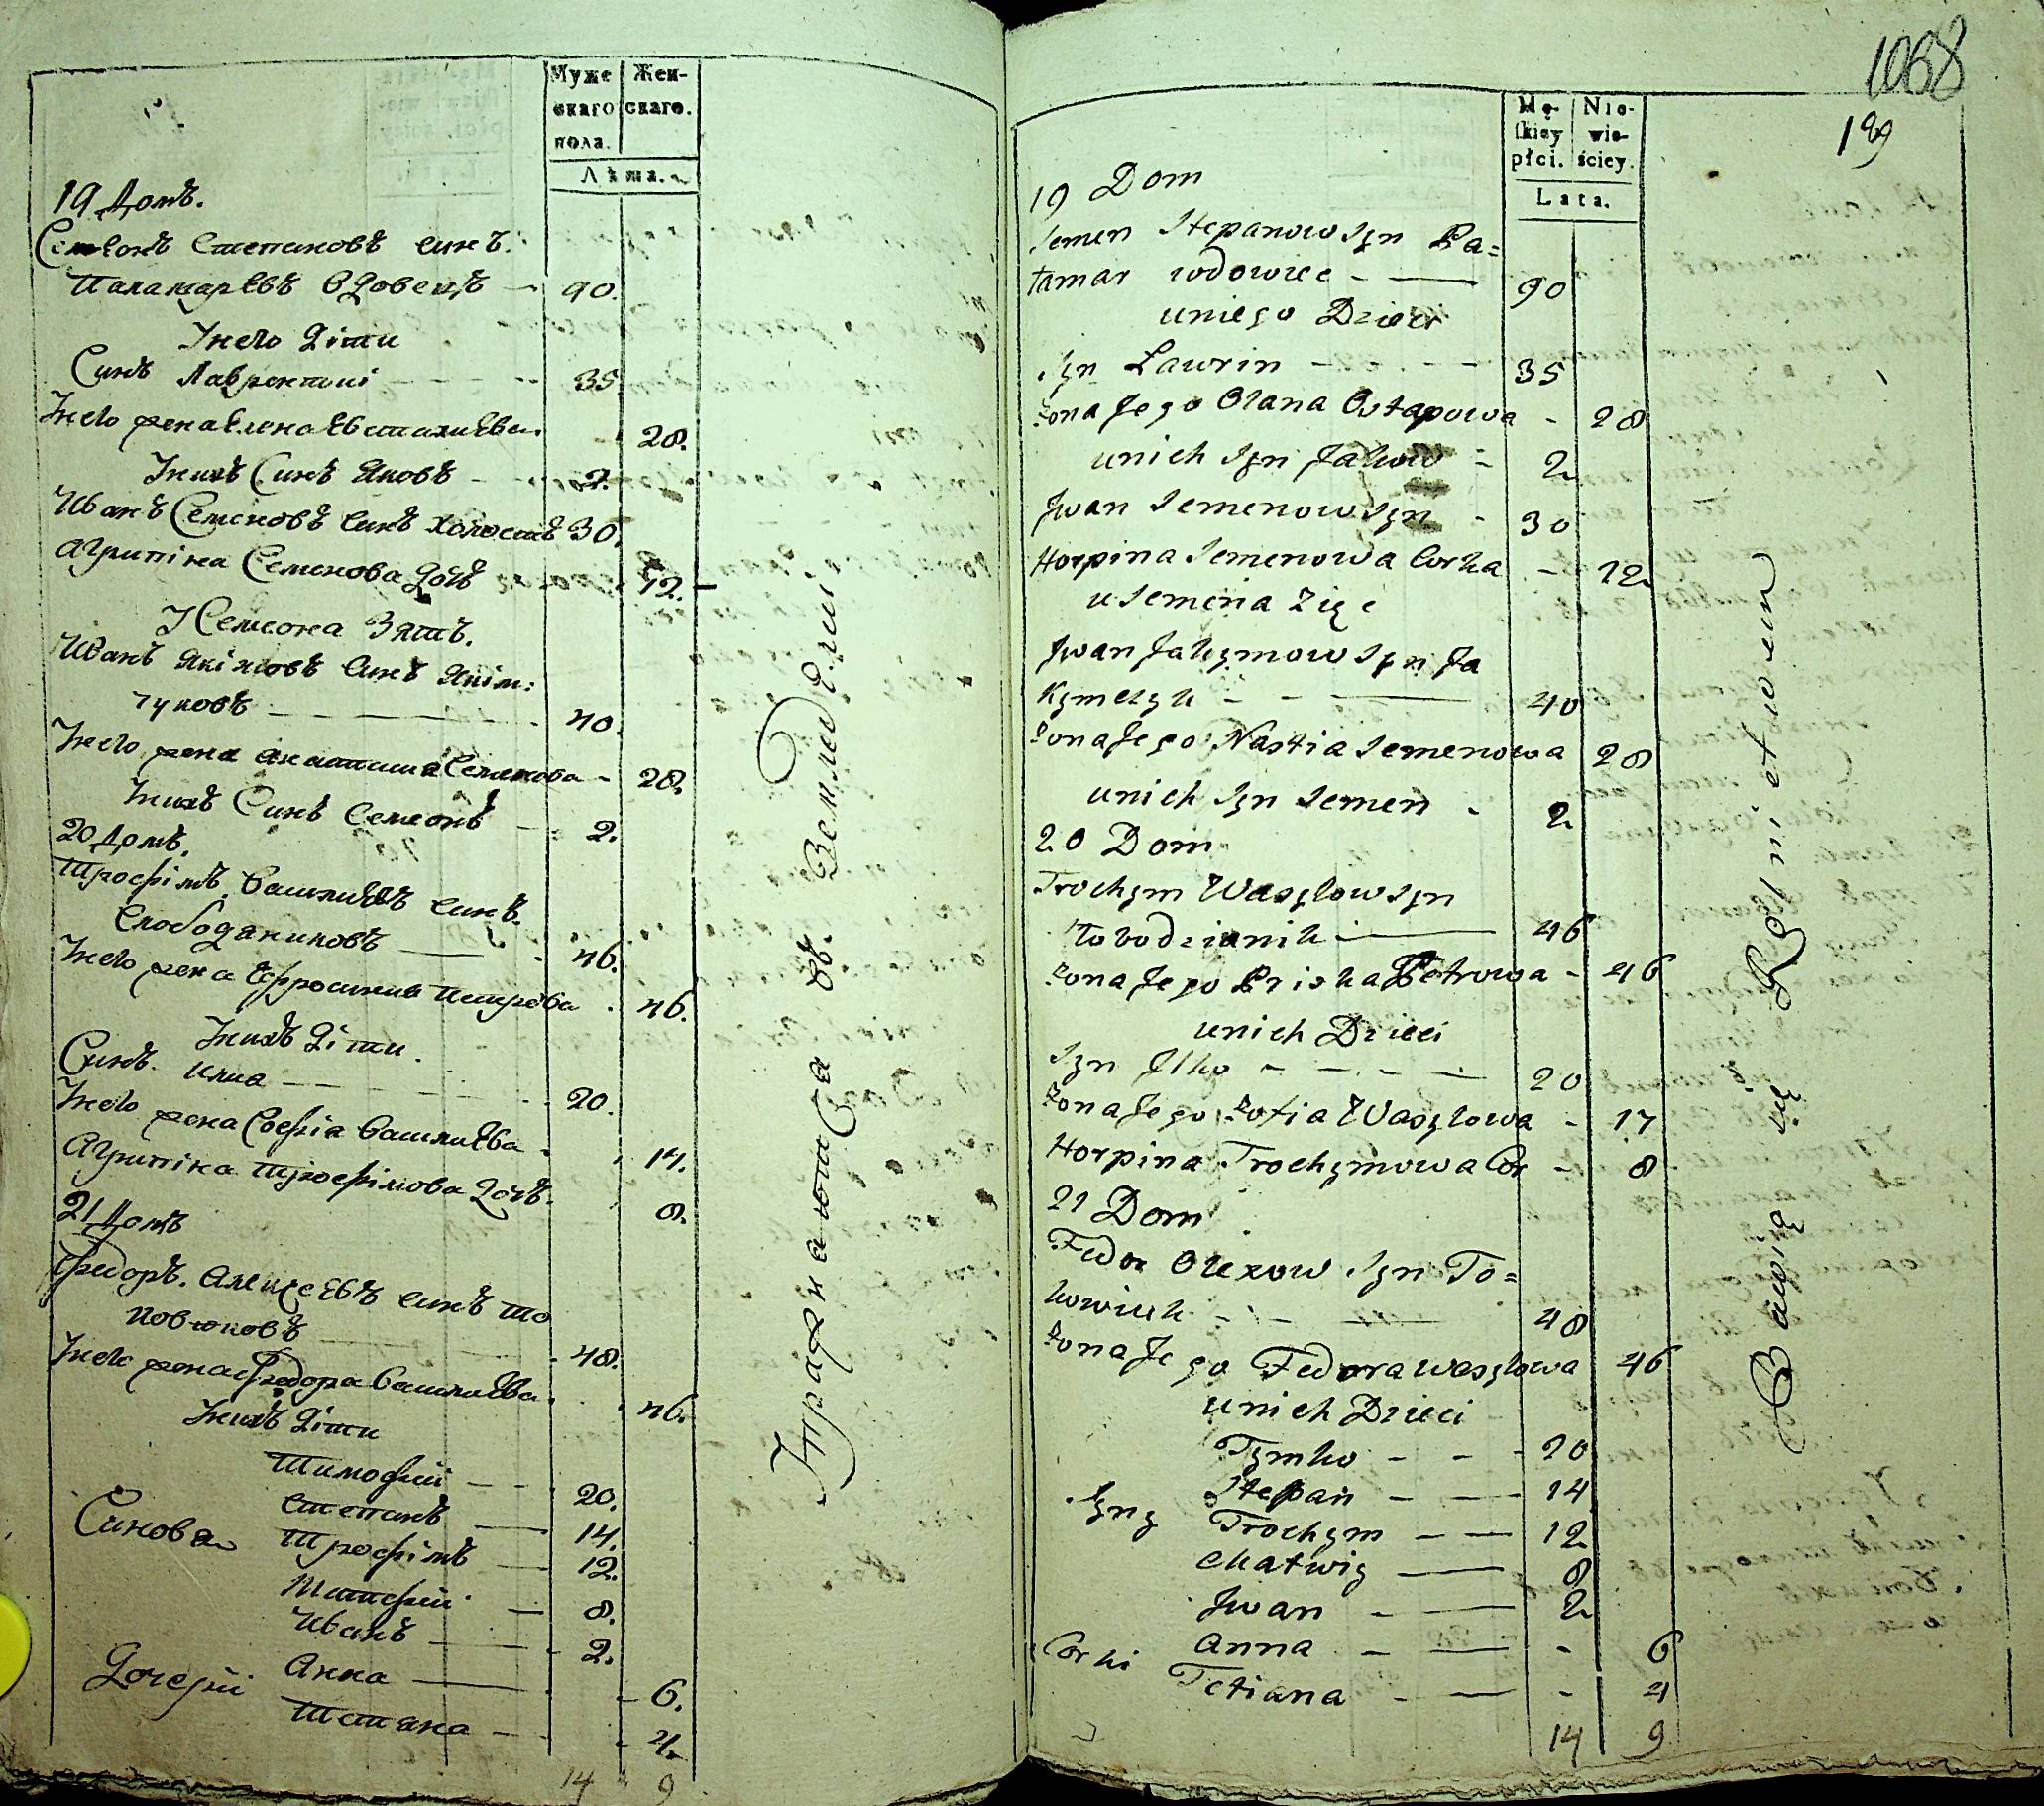 Муже Жен-
скаго скаго.
пола.
Лѣта.
19 Домъ.
Семіонъ Степановъ синъ.
Паламарѣвъ Вдовецъ — 90.
Унего діти
Синъ Лаврентій - - - 35.
Унего жена Елена Евстахіева. 28.
Унихъ Синъ Яковъ - - 2.
Иванъ Семеновъ синъ холостъ 30.
Агрипіна Семенова дочъ 12. -
У Семіона Зять.
Иванъ Якімовъ Синъ Якім:
чуковъ — 40.
Унего жена Анастасіа Семенова - 28.
Унихъ Синъ Семіонъ - 2.
20 Домъ.
Трофімъ Василіевъ синъ.
Слободяниковъ — 46.
Унего жена Ефросиния Петрова . 46.
Унихъ діти.
Синъ. Илиа — 20.
Унего жена Софіа Василіева - 17.
Агрипіна Трофімова дочъ. 8.
21 Домъ
Федоръ. Алексѣевъ синъ То
ковюковъ - 48.
Унего жена Федора Василіева. 46.
Унихъ діти
Тимофій — 20.
Степанъ — 14.
Синова Трофімъ — 12.
Матфій — 8.
Иванъ — 2.
Дочери Анна — 6.
Татяна — 4.
14 9
Упражняются въ Земледѣлии
1088
189
Mę- Nie-
skiey wie-
płci. ściey.
Lata.
19 Dom
Semen Stepanow Syn Pa=
łamar wdowiec — 90
uniego Dzieci
Syn Ławrin - - - 35
żona Jego Olana Ostapowa - 28
unich Syn Jakow - 2
Jwan Semenow Syn - 30
Horpina Semenowa Corka - 12
u Semena Zięc
Jwan Jakymow Syn Ja
kymczyk - - — 40
żona Jego Nastia Semenowa 28
unich Syn Semen - 2
20 Dom
Trochym Wasylow Syn
łobodzianik — 46
żona Jego Priska Petrowa - 46
unich Dzieci
Syn Jlko - - - — 20
żona Jego Zofia Wasylowa - 17
Horpina Trochymowa Cor - 8
21 Dom
Fedor Olexow Syn To=
kowiuk - - — 48
żona Jego Fedora Wasylowa 46
unich Dzieci
Tymko - - - 20
Stepan - — 14
Syny Trochym - — 12
Matwiy — 8
Jwan - — 2
Corki Anna - — - 6
Tetiana - — - 4
14 9
Bawią się Rolnictwem